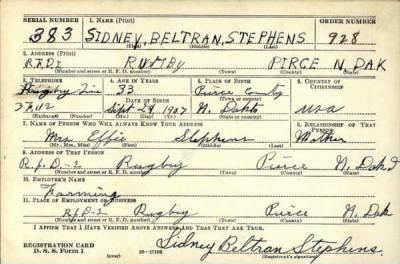 SERIAL NUMBER 1. NAME (Print) ORDER NUMBER
383 SIDNEY, BELTRAN, STEPHENS 928
(First) (Middle) (Last)
2. ADDRESS (Print)
R.F.D. RUGBY PIRCE N. DAK
(Number and street or R. F. D. number) (Town) (County) (State)
3. TELEPHONE 4. AGE IN YEARS 5. PLACE OF BIRTH 6. COUNTRY OF CITIZENSHIP
Rugby Line 33 Pierce County
DATE OF BIRTH (Town or county)
37 F 112 Sept 29 1907 N. Dakota USA
(Exchange) (Number) (Mo.) (Day) (Yr.) (State or country)
7. NAME OF PERSON WHO WILL ALWAYS KNOW YOUR ADDRESS 8. RELATIONSHIP OF THAT PERSON
Mrs. Effie Stephens Mother
(Mr., Mrs., Miss) (First) (Middle) (Last)
9. ADDRESS OF THAT PERSON
R.f.D-2 Rugby Pierce N. Dakd
(Number and street or R. F. D. number) (Town) (County) (State)
10. EMPLOYER'S NAME
Farming
11. PLACE OF EMPLOYMENT OR BUSINESS
R.f.D-2 Rugby Pierce N. Dak
(Number and street or R. F. D. number) (Town) (County) (State)
I AFFIRM THAT I HAVE VERIFIED ABOVE ANSWERS AND THAT THEY ARE TRUE.
REGISTRATION CARD
D. S. S. FORM 1 Sidney Beltran Stephens